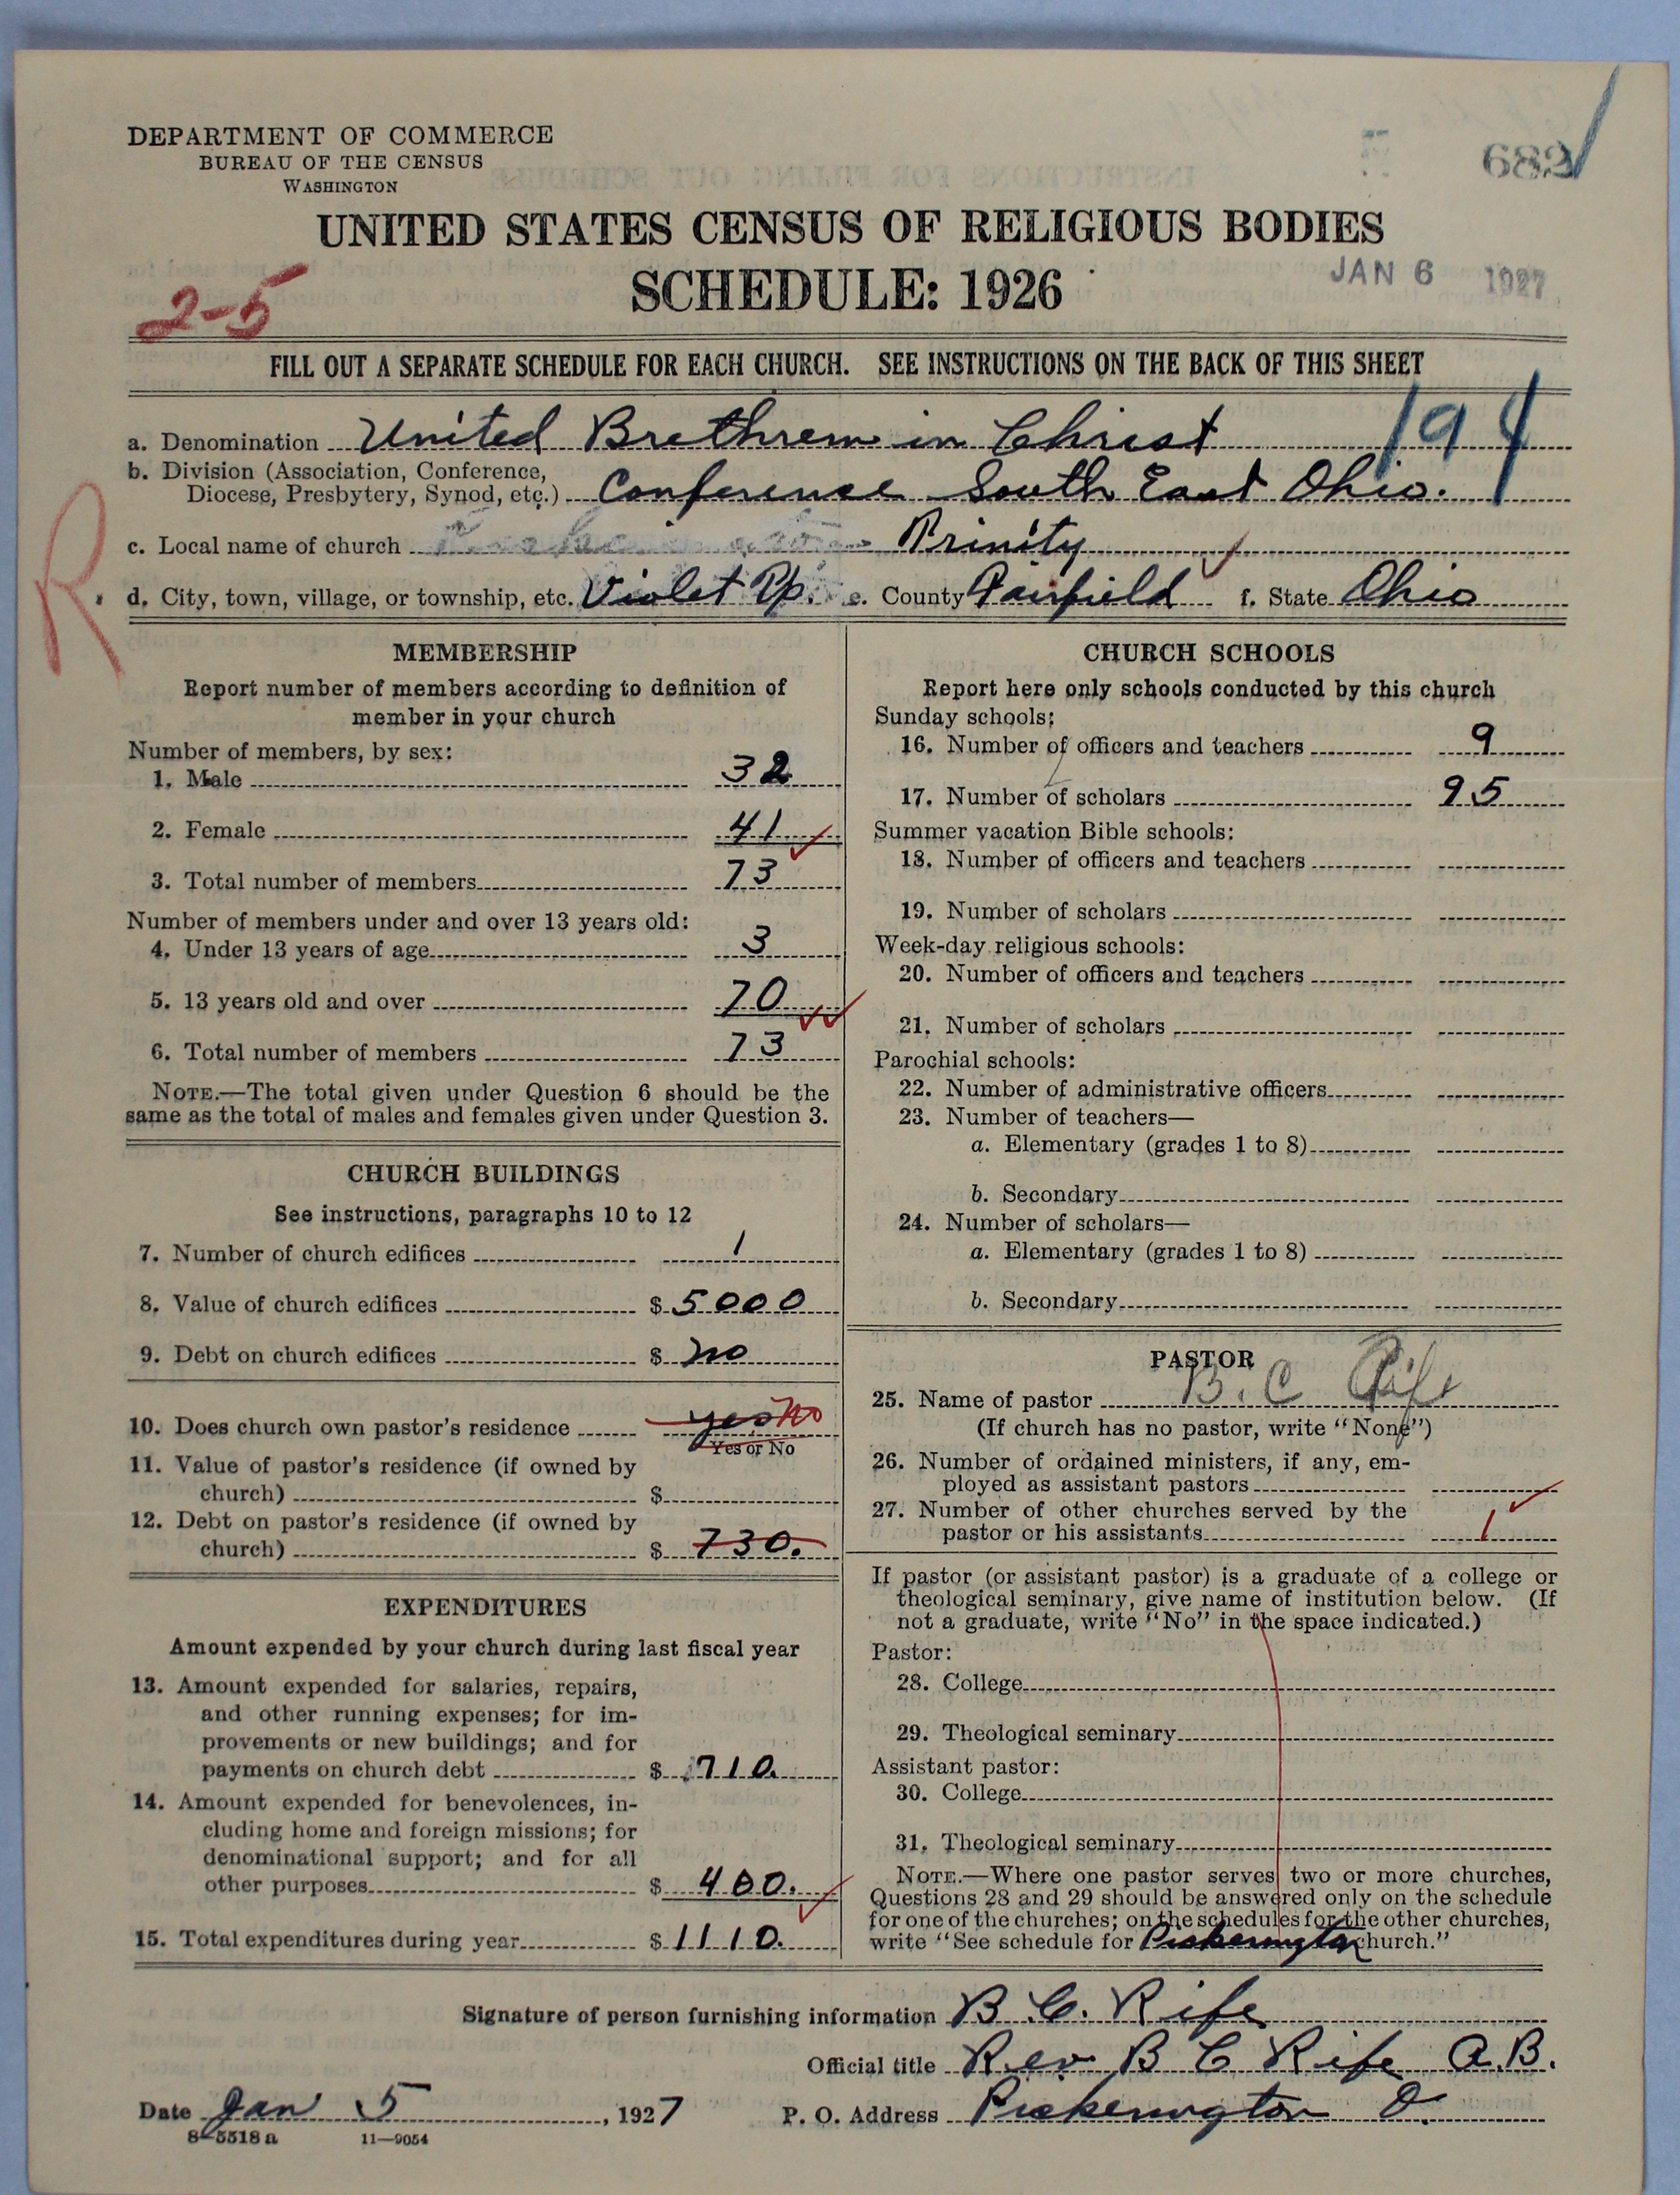 682
DEPARTMENT OF COMMERCE
BUREAU OF THE CENSUS
WASHINGTON
UNITED STATES CENSUS OF RELIGIOUS BODIES
SCHEDULE: 1926
JAN 6 1927
2-5
FILL OUT A SEPARATE SCHEDULE FOR EACH CHURCH. SEE INSTRUCTIONS ON THE BACK OF THIS SHEET
194
a. Denomination United Brethren in Christ
b. Division (Association, Conference,
Diocese, Presbytery, Synod, etc.) Conference South East Ohio.
c. Local name of church Trinity
R
d. City, town, village, or township, etc. Violet Tp. e. County Fairfield f. State Ohio
MEMBERSHIP
Report number of members according to definition of
member in your church
Number of members, by sex:
1. Male 32
2. Female 41
3. Total number of members 73
Number of members under and over 13 years old:
4. Under 13 years of age 3
5. 13 years old and over 70
6. Total number of members 73
NOTE.—The total given under Question 6 should be the
same as the total of males and females given under Question 3.
CHURCH BUILDINGS
See instructions, paragraphs 10 to 12
7. Number of church edifices 1
8. Value of church edifices $ 5000
9. Debt on church edifices $ no
10. Does church own pastor's residence yes No
Yes or No
11. Value of pastor's residence (if owned by
church) $
12. Debt on pastor's residence (if owned by
church) $ 730.
EXPENDITURES
Amount expended by your church during last fiscal year
13. Amount expended for salaries, repairs,
and other running expenses; for im-
provements or new buildings; and for
payments on church debt $ 710.
14. Amount expended for benevolences, in-
cluding home and foreign missions; for
denominational support; and for all
other purposes $ 400.
15. Total expenditures during year $ 1110.
CHURCH SCHOOLS
Report here only schools conducted by this church
Sunday schools:
16. Number of officers and teachers 9
17. Number of scholars 95
Summer vacation Bible schools:
18. Number of officers and teachers
19. Number of scholars
Week-day religious schools:
20. Number of officers and teachers
21. Number of scholars
Parochial schools:
22. Number of administrative officers
23. Number of teachers—
a. Elementary (grades 1 to 8)
b. Secondary
24. Number of scholars—
a. Elementary (grades 1 to 8)
b. Secondary
PASTOR
25. Name of pastor B. C Rife
(If church has no pastor, write "None")
26. Number of ordained ministers, if any, em-
ployed as assistant pastors
27. Number of other churches served by the
pastor or his assistants 1
If pastor (or assistant pastor) is a graduate of a college or
theological seminary, give name of institution below. (If
not a graduate, write "No" in the space indicated.)
Pastor:
28. College
29. Theological seminary
Assistant pastor:
30. College
31. Theological seminary
NOTE.—Where one pastor serves two or more churches,
Questions 28 and 29 should be answered only on the schedule
for one of the churches; on the schedules for the other churches,
write "See schedule for Pickerington church."
Signature of person furnishing information B. C. Rife
Official title Rev B C Rife A.B.
Date Jan 5, 1927 P. O. Address Pickerington O.
8-5518a 11-9054